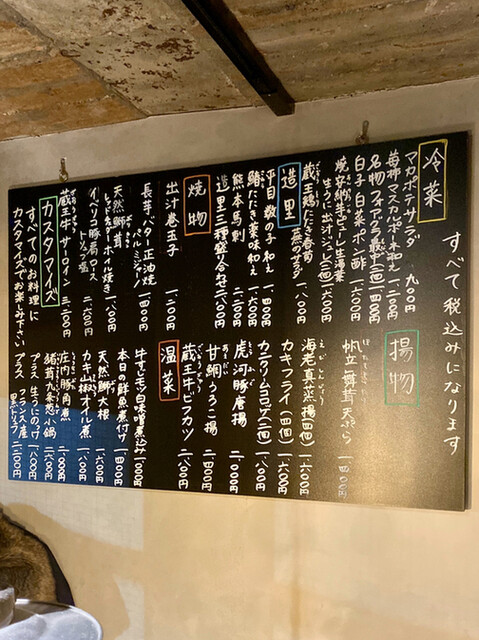 すべて税込みになります
冷菜
マカロニポテサラダ 九〇〇円
苺柿マスカルポーネ和え 一、二〇〇円
名物フォアグラ最中(二個) 一、四〇〇円
白子白菜ポン酢 一、六〇〇円
生うに出汁ジュレ(二個) 一、六〇〇円
蔵王鶏たたき春菊
蕪のサラダ 一、八〇〇円
造里
平目数の子和え 一、四〇〇円
鮪たたき薬味和え 一、六〇〇円
熊本馬刺 二、一〇〇円
造里三種盛り合わせ 二、二〇〇円
焼物
出汁巻玉子 一、二〇〇円
長芋バター正油焼
パルミジャーノ 一、四〇〇円
天然鰤茸
ホイル焼き 一、八〇〇円
イベリコ豚肩ロース
トリュフ塩 二、六〇〇円
蔵王牛サーロイン 三、二〇〇円
カスタマイズ
すべてのお料理に
カスタマイズでお楽しみ下さい
揚物
帆立舞茸天ぷら 一、四〇〇円
海老真薯揚(四個) 一、六〇〇円
カキフライ(四個) 一、六〇〇円
カニクリームコロッケ(二個) 一、八〇〇円
虎河豚唐揚 二、一〇〇円
甘鯛うろこ揚 二、二〇〇円
蔵王牛ビフカツ 二、八〇〇円
温菜
牛すじモツ白味噌煮込み 一、一〇〇円
本日の鮮魚煮付け 一、四〇〇円
天然鰤大根 一、六〇〇円
オイル煮 一、八〇〇円
庄内豚角煮 二、一〇〇円
猪茸九条葱小鍋 二、六〇〇円
プラス 生うにのっけ 一、八〇〇円
プラス フランス産
黒トリュフ 二、二〇〇円